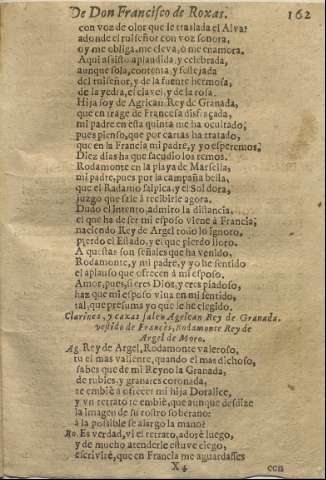 De Don Francisco de Roxas. 162
con voz de olor que le traslada el Alva:
adonde el ruiseñor con voz sonora,
oy me obliga, me eleva, ò me enamora.
Aqui assisto aplaudida, y celebrada,
aunque sola, contenta, y festejada
del ruiseñor, y de la fuente hermosa,
de la yedra, el clavel, y de la rosa.
Hija soy de Agrican Rey de Granada,
que en trage de Francesa disfraçada,
mi padre en esta quinta me ha ocultado,
pues pienso, que por cartas ha tratado,
que en la Francia mi padre, y yo esperemos,
Diez dias ha que sacudio los remos.
Rodamonte en la playa de Marsella,
mi padre, pues por la campaña bella,
que el Radamo salpica, y el Sol dora,
juzgo que sale à recibirle agora.
Dudo el intento, admiro la distancia,
el que ha de ser mi esposo viene à Francia,
naciendo Rey de Argel todo lo ignoro,
pierdo el Estado, y el que pierdo lloro.
A questas son señales que ha venido.
Rodamonte, y mi padre, y yo he sentido
el aplauso que ofrecen à mi esposo.
Amor, pues, si eres Dios, y eres piadoso,
haz que mi esposo viva en mi sentido,
tal, que presuma yo que le he elegido.
Clarines, y caxas salen Agrican Rey de Granada.
vestido de Francès, Rodamonte Rey de
Argel de Moro.
Ag. Rey de Argel, Rodamonte valeroso,
tu el mas valiente, quando el mas dichoso,
sabes que de mi Reyno la Granada,
de rubies, y granates coronada,
te embiè à ofrecer mi hija Doralice,
y vn retrato te embiè, que aun que desdize
la imagen de su rostro soberano:
à la possible se alargo la mano:
Ro. Es verdad, vi el retrato, adorè luego,
y de mucho atenderle estuve ciego,
escriviste, que en Francia me aguardasses
X4 con